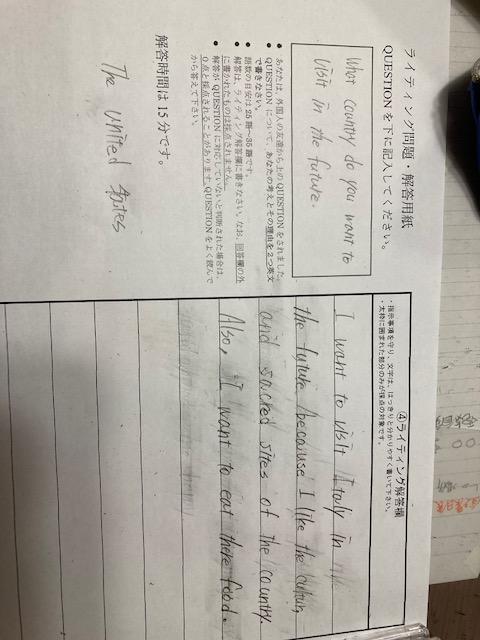 ライティング問題・解答用紙
QUESTION を下に記入してください。
What country do you want to
visit in the future.
● あなたは、外国人の友達から上の QUESTION をされました。
● QUESTION について、あなたの考えとその理由を2つ英文
で書きなさい。
● 語数の目安は 25 語〜35 語です。
● 解答は、ライティング解答欄に書きなさい。なお、回答欄の外
に書かれたものは採点されません。
● 解答が QUESTION に対応していないと判断された場合は、
0点と採点されることがあります。QUESTION をよく読んで
から答えて下さい。
解答時間は 15 分です。
The united states
④ライティング解答欄
・指示事項を守り、文字は、はっきりと分かりやすく書いて下さい。
・太枠に囲まれた部分のみが採点の対象です。
I want to visit Italy in
the future because I like the
and sacred sites of the country.
Also, I want to eat there food.